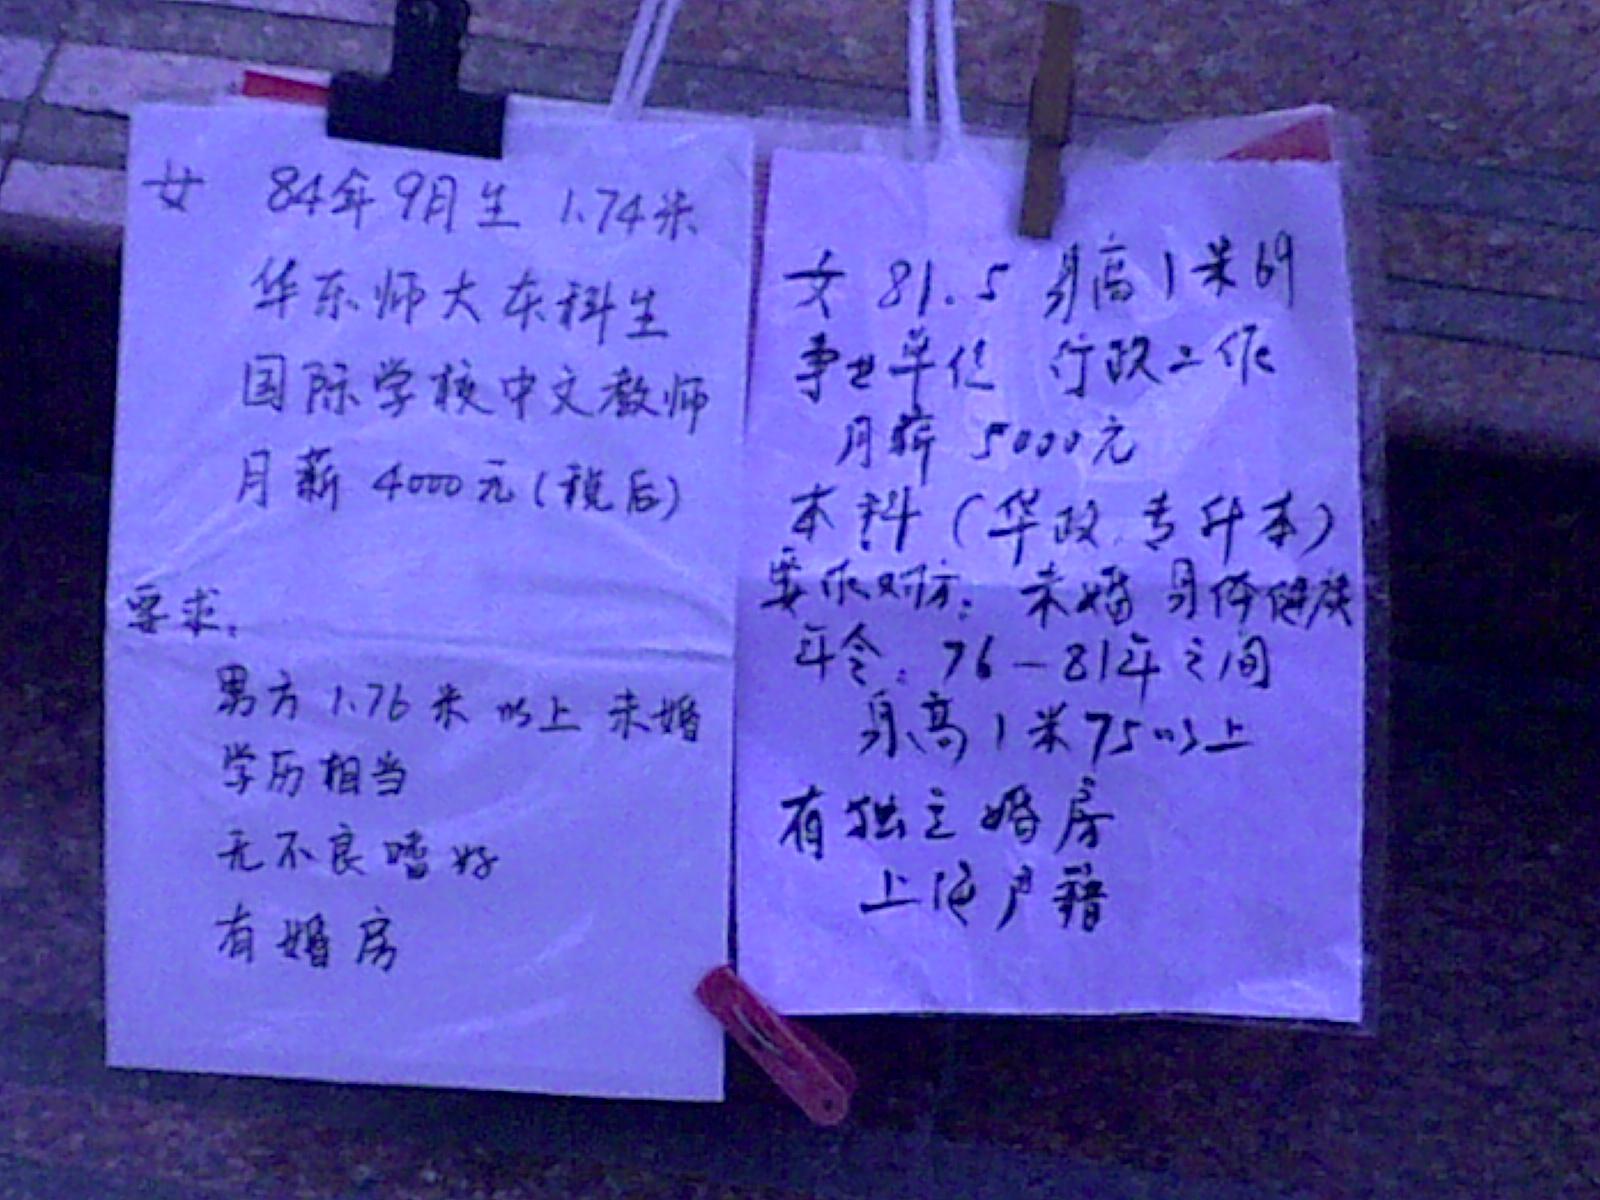 女 84年9月生 1.74米
华东师大本科生
国际学校中文教师
月薪 4000元(税后)
要求:
男方 1.76米 以上 未婚
学历相当
无不良嗜好
有婚房
女 81.5 身高1米69
事业单位 行政工作
月薪 5000元
本科(华政.专升本)
要求对方: 未婚 身体健康
年令: 76-81年之间
身高1米75以上
有独立婚房
上海户籍